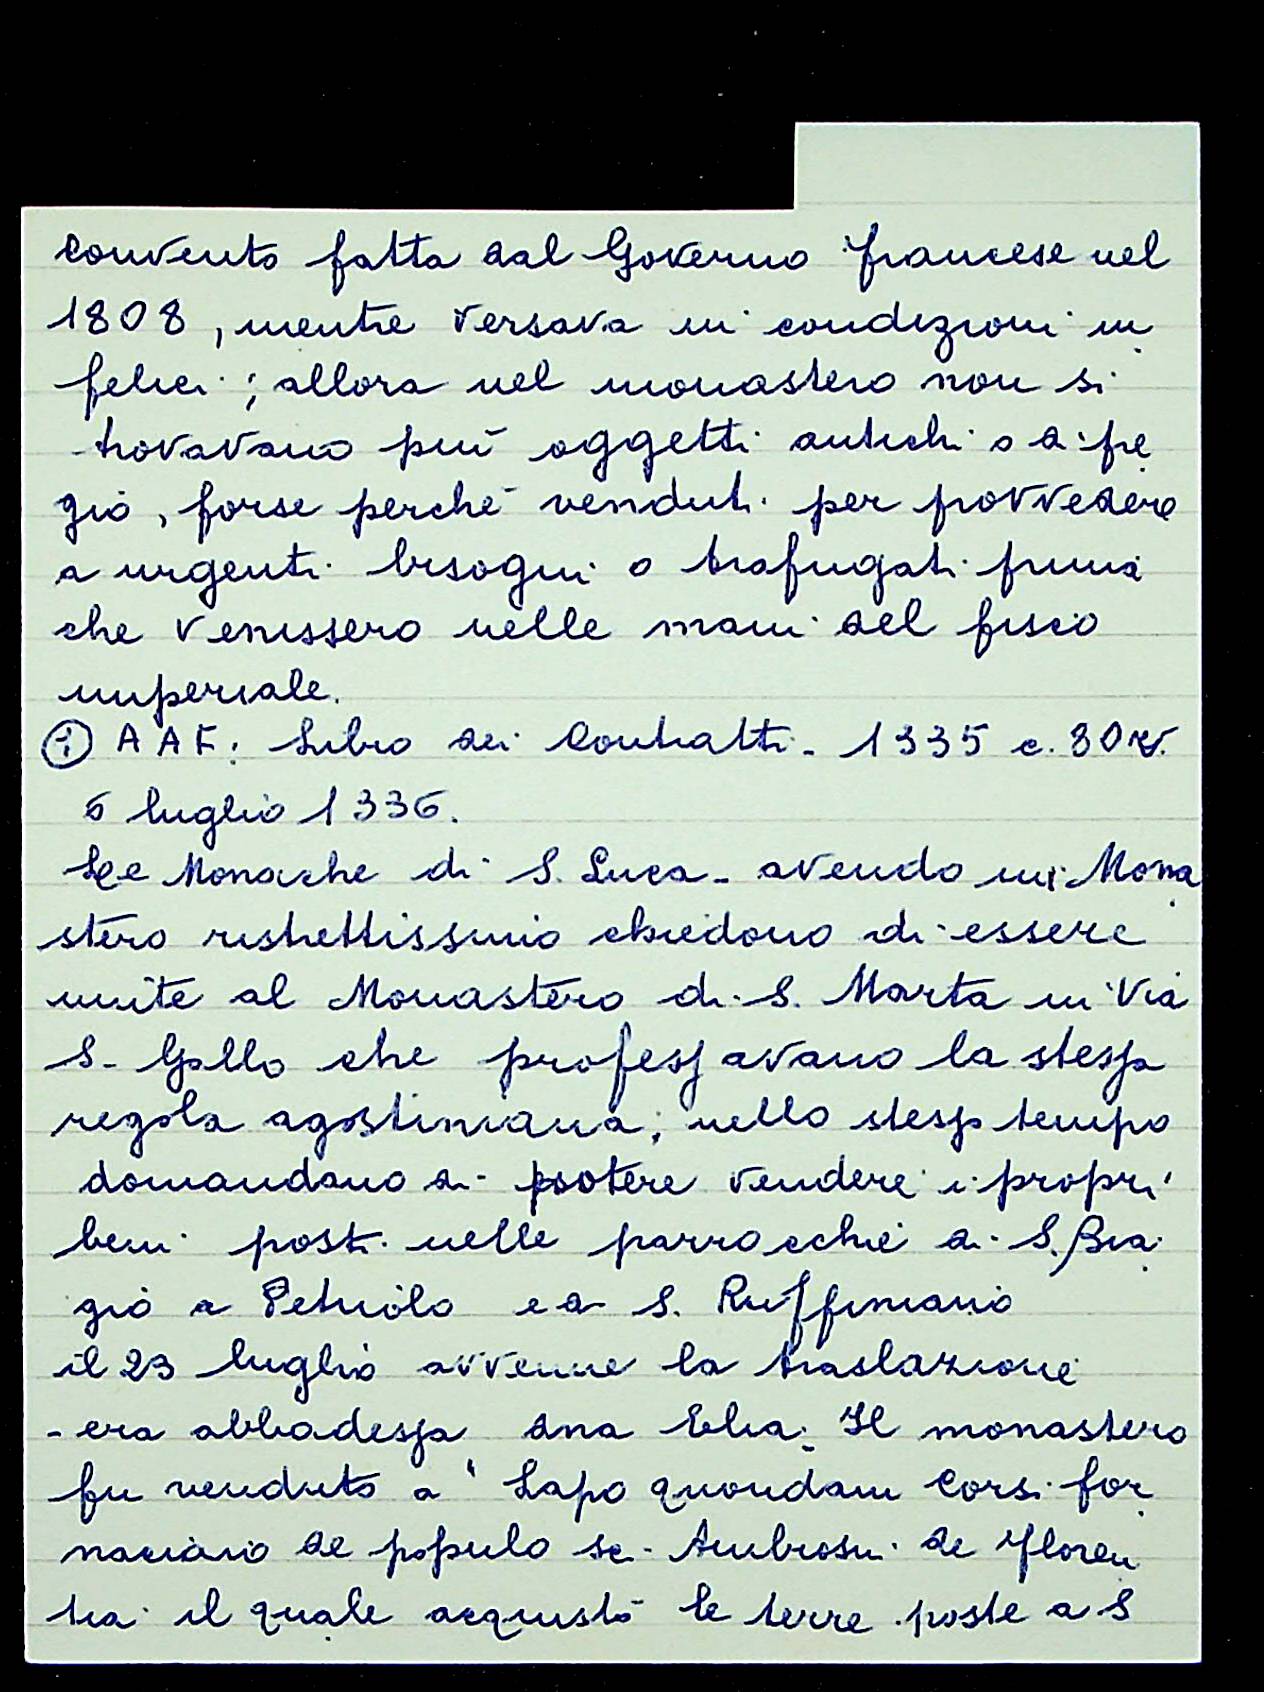 convento fatta dal Governo francese nel
1808, mentre versava in condizioni in
felici; allora nel monastero non si
trovavano più oggetti antichi o di pre
gio, forse perchè venduti per provvedere
a urgenti bisogni o trafugati prima
che venissero nelle mani del fisco
imperiale.
① AAF: Libro dei Contratti - 1335 c. 80 v.
6 luglio 1336.
Le Monache di S. Luca - avendo un Mona
stero ristrettissimo chiedono di essere
unite al Monastero di S. Marta in Via
S. Gallo che professavano la stessa
regola agostiniana; nello stesso tempo
domandano di potere vendere i propri
beni posti nelle parrocchie di S. Bia
gio a Petriolo e di S. Ruffiniano
il 23 luglio avvenne la traslazione
- era abbadessa dna Elia. Il monastero
fu venduto a "Lapo quondam Corsi for
naciario de populo sc. Ambrosii de Floren
tia il quale acquistò le terre poste a S